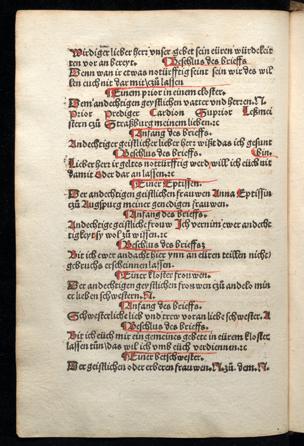 Wirdiger lieber herr vnser gebet sein eüren würdekeit
ten vor an bereyt. Beschlus des brieffs
Wenn wan ir etwas notürfftig seint sein wir des wil
len euch nit dar mit zů lassen
Einem prior in einem closter.
Dem andechtigen geystlichen vatter vnd herren. N.
Prior Prediger Cardion Suprior Leßmei
stern zů Straßburg meinem lieben. ꝛc
Anfang des brieffs.
Andechtiger geistlicher lieber herr wißt das ich gesunt
Beschlus des brieffs. bin.
Lieber herr ir geltes notürfftig werd will ich euch nit
damit Oder dar an lassen. ꝛc
Einer Eptissen.
Der andechtigen geistlichen frauwen Anna Eptissin
zů Augspurg meiner genedigen frauwen.
Anfang des brieffs.
Andechtige geistliche frouw Ich vernim ewer andecht
tigkeyt sy wol zů wissen. ꝛc
Beschlus des brieffs
Bit ich ewer andacht hier ynn an eüren teillen nicht
gebruchs erscheinnen lassen.
Einer kloster frouwen.
Der andechtigen geystlichen frouwen zů andelo min
er lieben schwestern. N.
Anfang des brieffs.
Schwesterliche lieb vnd trew vor an liebe schwester. A
Beschlus des brieffs.
Bit ich euch mir ein gemeines gebete in eürem kloster
lassen tůn das wil ich vmb euch verdiennen. ꝛc
Einer betschwester.
Der geistlichen oder erberen frauwen. N. zů. dem. N.